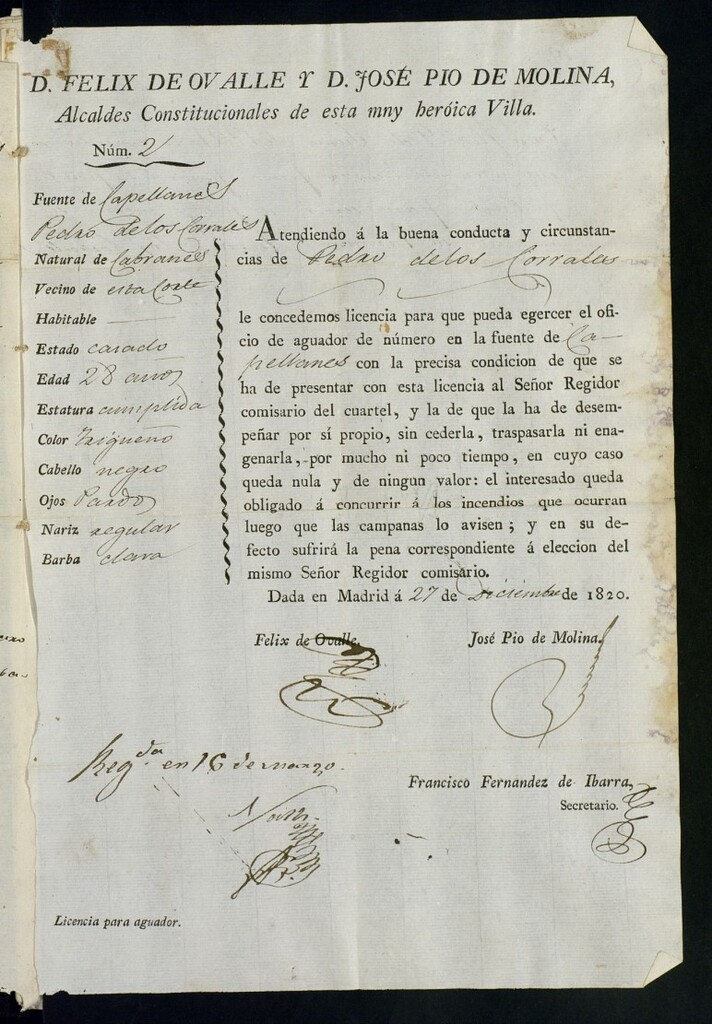 D. FELIX DE OVALLE Y D. JOSÉ PIO DE MOLINA,
Alcaldes Constitucionales de esta mny heróica Villa.
Núm. 2
Fuente de Capellanes
Pedro delos Corrales
Natural de Cabranes
Vecino de esta Corte
Habitable
Estado casado
Edad 28 años
Estatura cumplida
Color Trigueño
Cabello negro
Ojos Pardos
Nariz regular
Barba clara
Atendiendo á la buena conducta y circunstan-
cias de Pedro delos Corrales
le concedemos licencia para que pueda egercer el ofi-
cio de aguador de número en la fuente de Ca-
pellanes con la precisa condicion de que se
ha de presentar con esta licencia al Señor Regidor
comisario del cuartel, y la de que la ha de desem-
peñar por sí propio, sin cederla, traspasarla ni ena-
genarla, por mucho ni poco tiempo, en cuyo caso
queda nula y de ningun valor: el interesado queda
obligado á concurrir á los incendios que ocurran
luego que las campanas lo avisen; y en su de-
fecto sufrirá la pena correspondiente á eleccion del
mismo Señor Regidor comisario.
Dada en Madrid á 27 de Diciembre de 1820.
Felix de Ovalle.
José Pio de Molina.
Regda en 16 de marzo.
Francisco Fernandez de Ibarra,
Secretario.
Licencia para aguador.